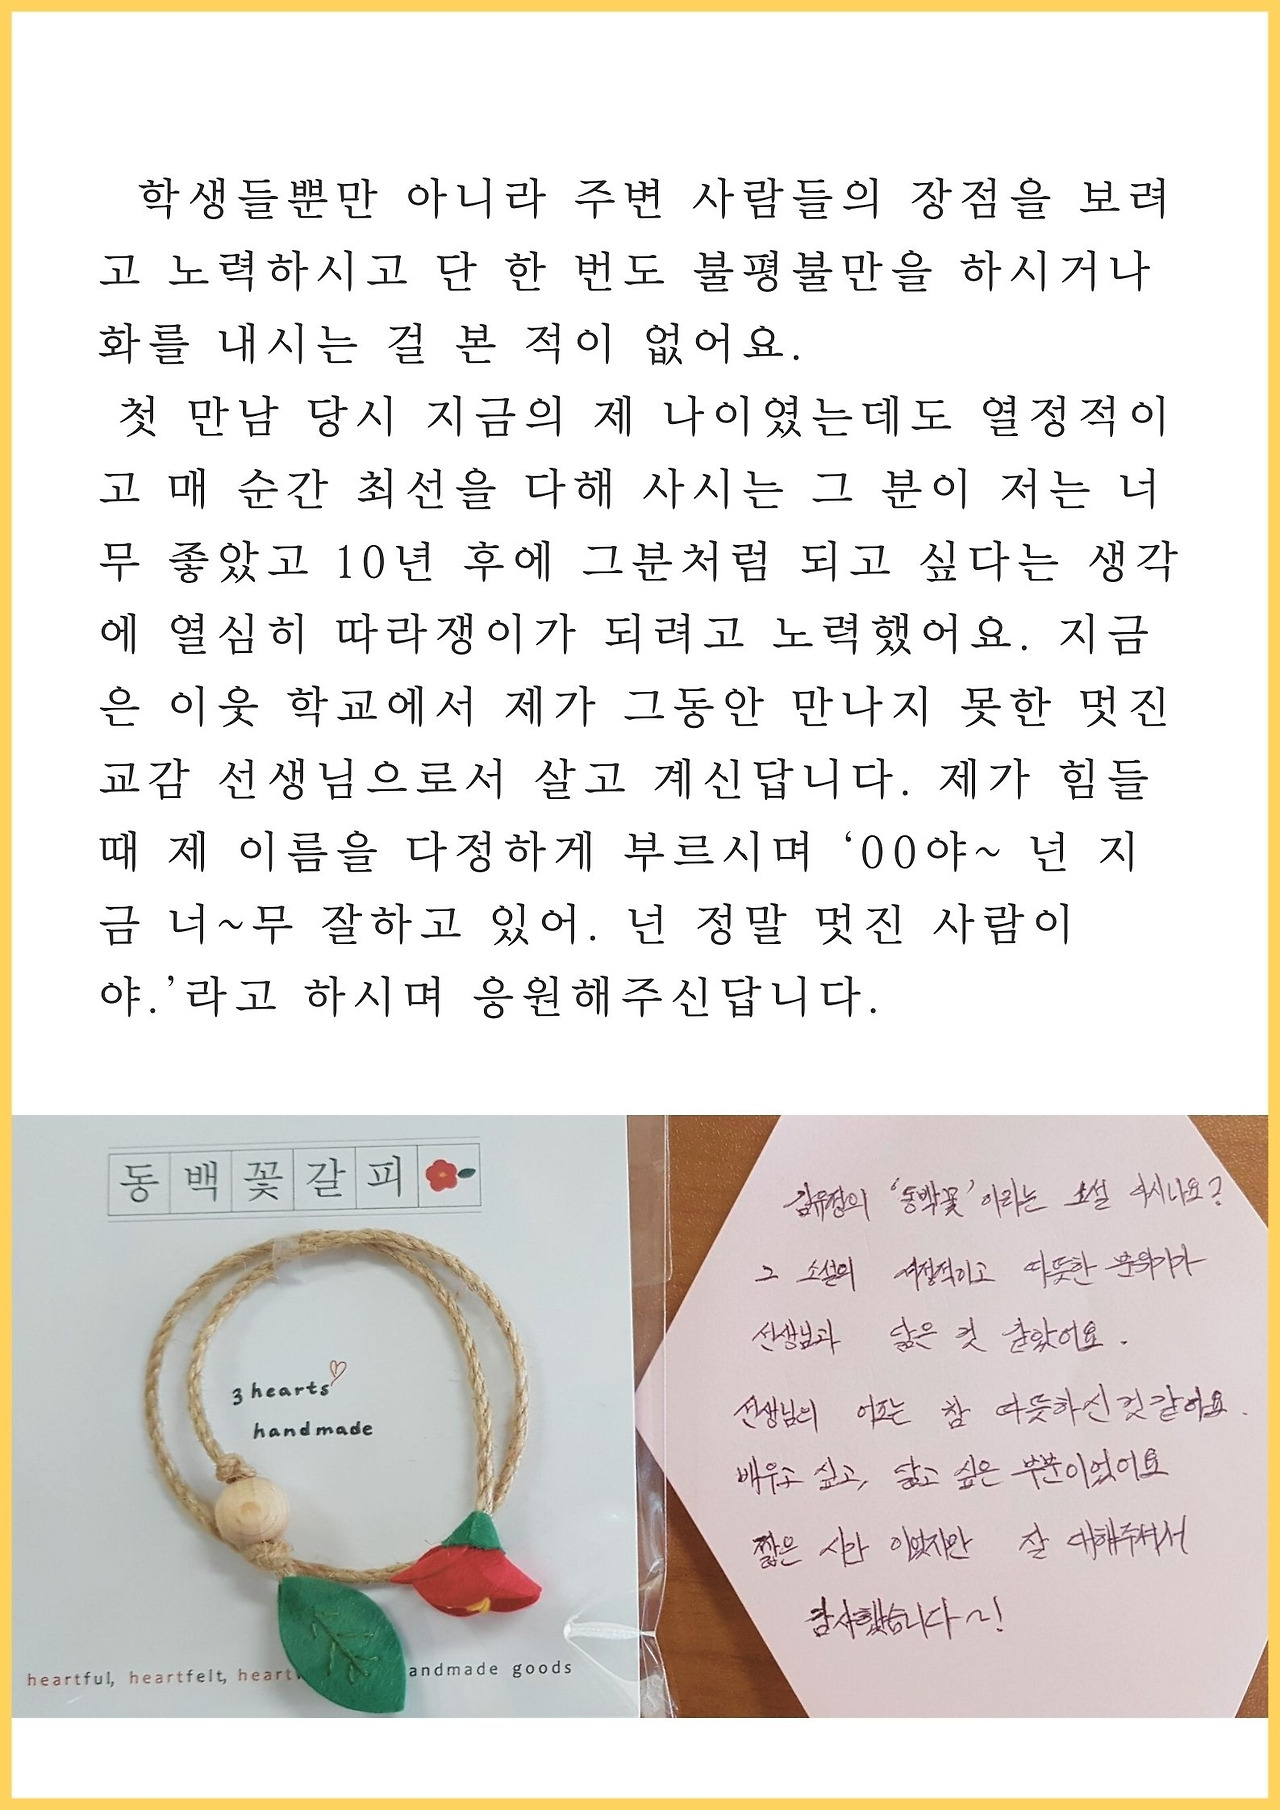 학생들뿐만 아니라 주변 사람들의 장점을 보려
고 노력하시고 단 한 번도 불평불만을 하시거나
화를 내시는 걸 본 적이 없어요.
첫 만남 당시 지금의 제 나이였는데도 열정적이
고 매 순간 최선을 다해 사시는 그 분이 저는 너
무 좋았고 10년 후에 그분처럼 되고 싶다는 생각
에 열심히 따라쟁이가 되려고 노력했어요. 지금
은 이웃 학교에서 제가 그동안 만나지 못한 멋진
교감 선생님으로서 살고 계신답니다. 제가 힘들
때 제 이름을 다정하게 부르시며 ‘00야~ 넌 지
금 너~무 잘하고 있어. 넌 정말 멋진 사람이
야.’라고 하시며 응원해주신답니다.
동백꽃갈피
3 hearts
handmade
heartful, heartfelt, heart andmade goods
김유정의 '동백꽃'이라는 소설 아시나요?
그 소설의 서정적이고 따뜻한 분위기가
선생님과 닮은 것 같았어요.
선생님의 어투는 참 따뜻하신것같아요.
배우고 싶고, 닮고 싶은 부분이었어요
짧은 시간 이었지만 잘 대해주셔서
감사했습니다~!